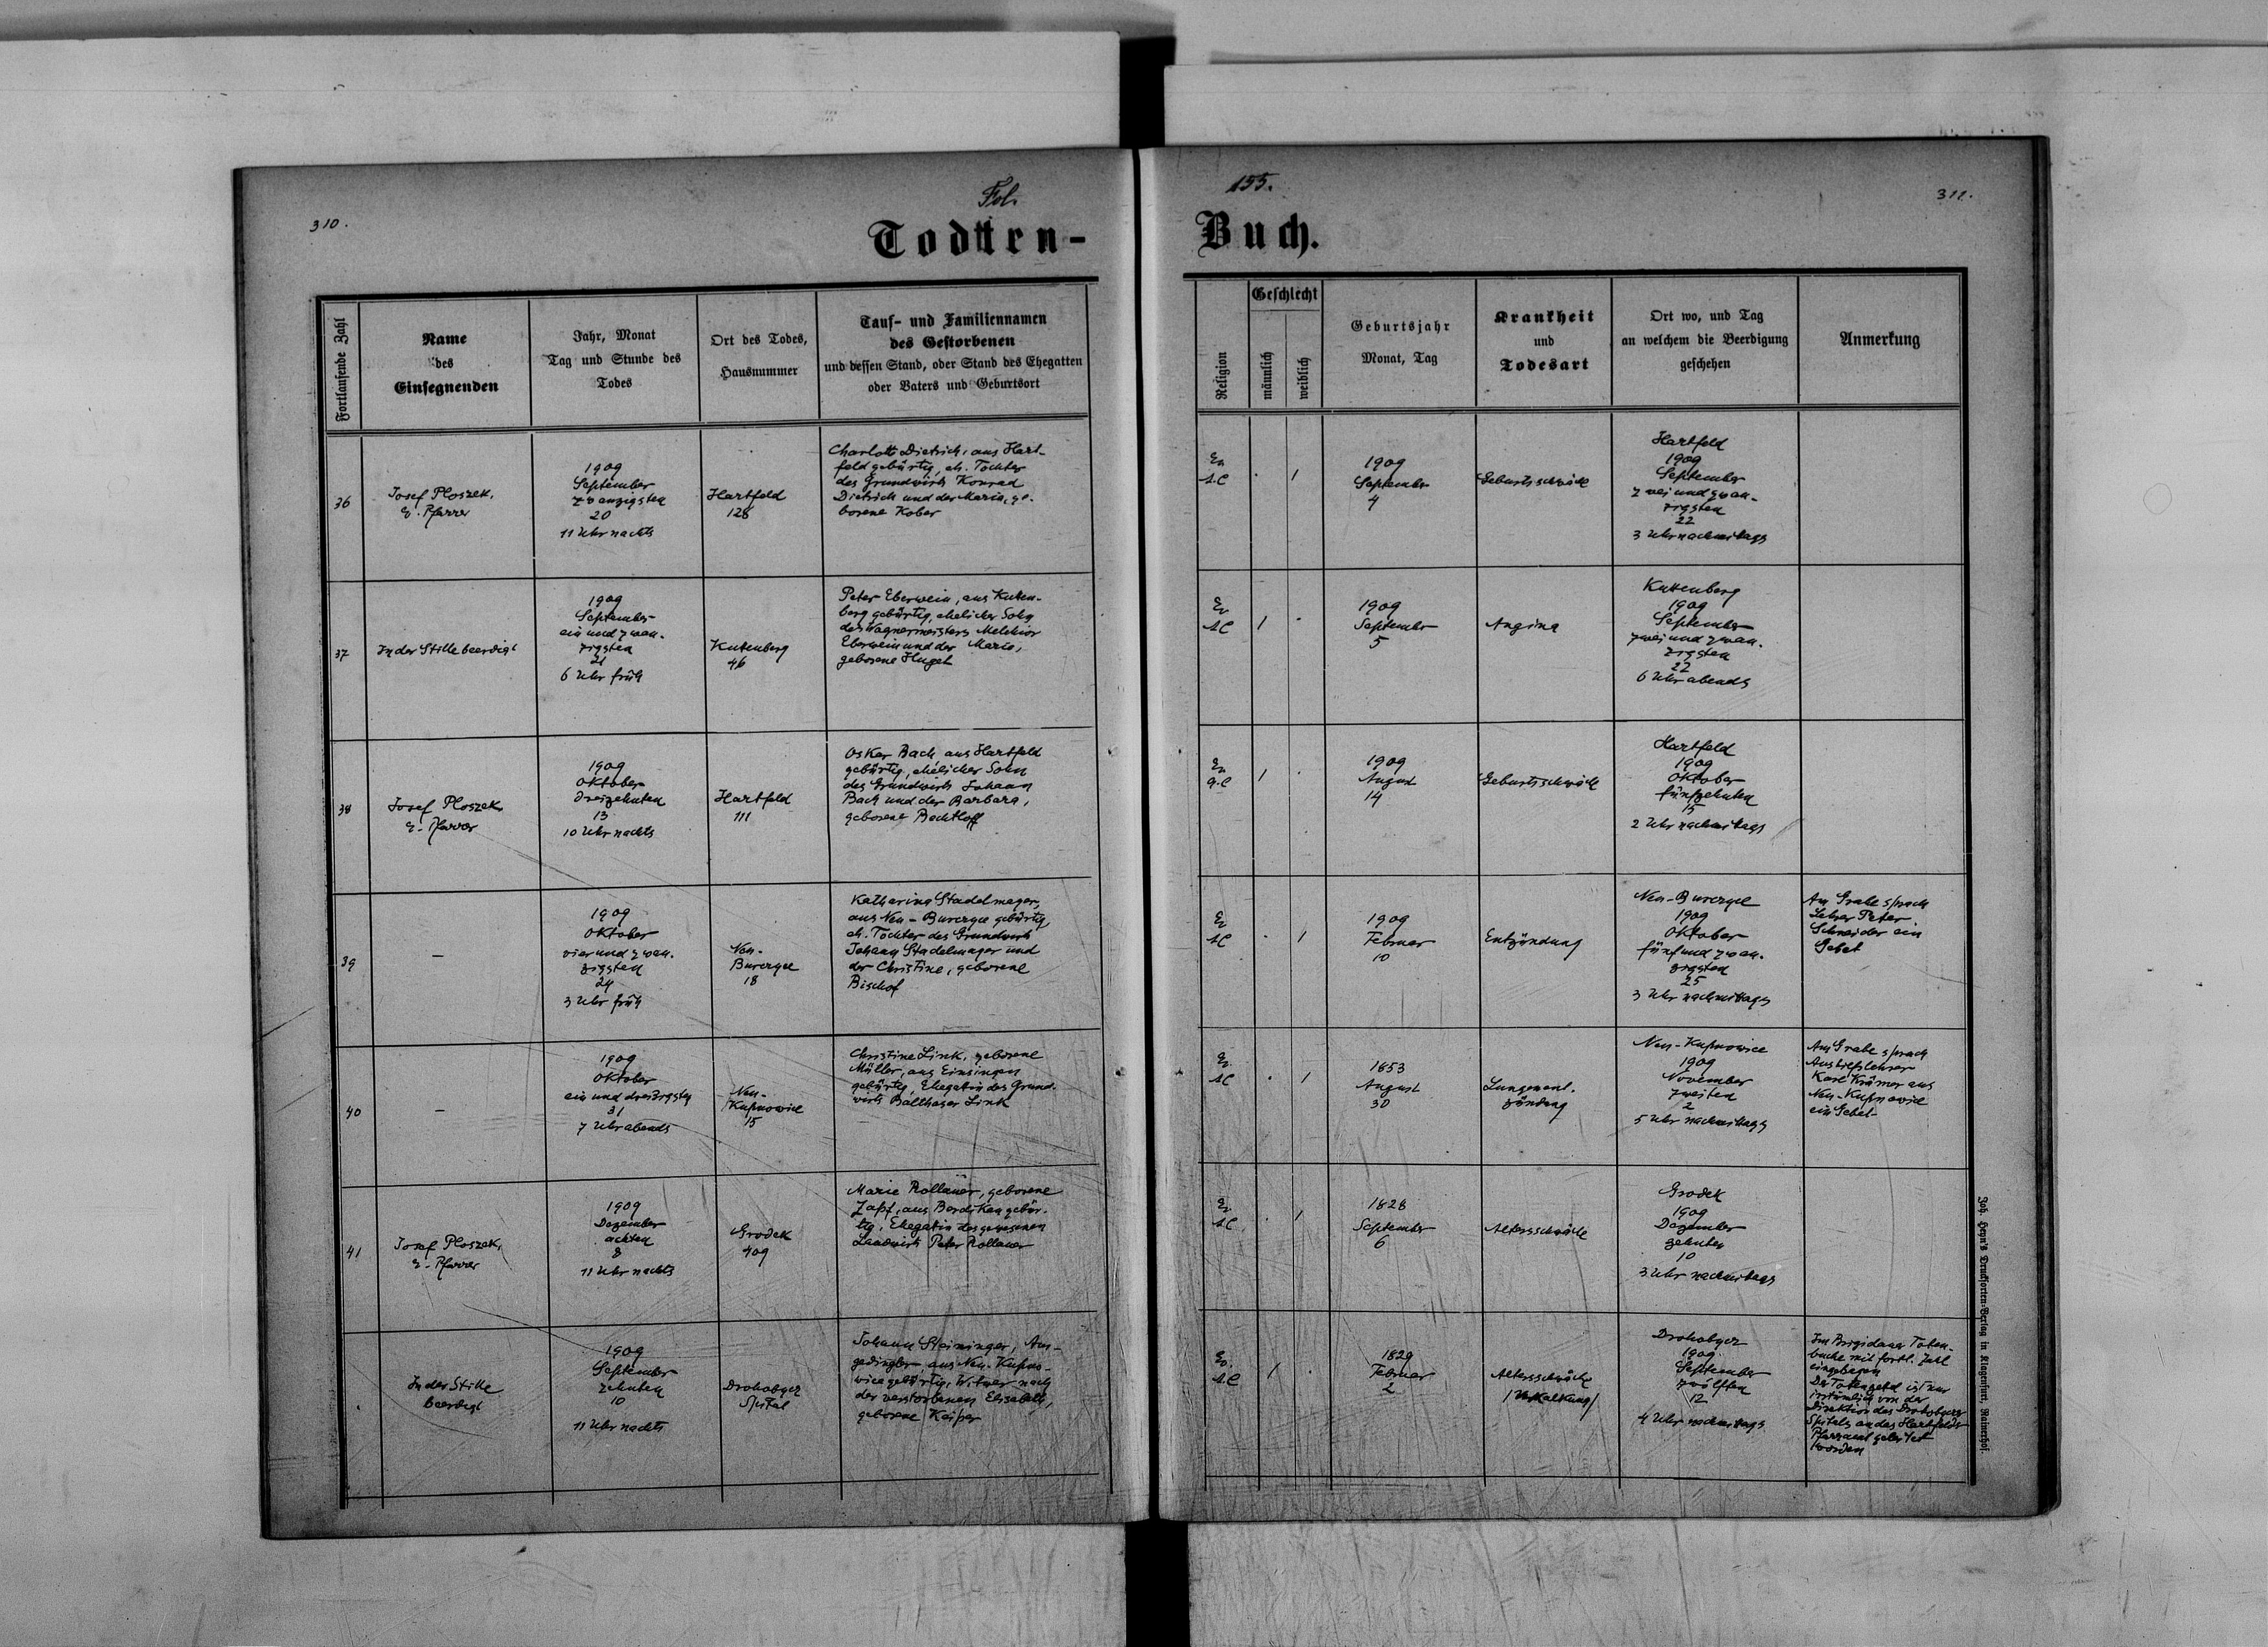 310.
Fol.
155.
311.
Todtten-
Buch.
Fortlaufende Zahl
Name
des
Einsegnenden
Jahr, Monat
Tag und Stunde des
Todes
Ort des Todes,
Hausnummer
Tauf- und Familiennamen
des Gestorbenen
und dessen Stand, oder Stand des Ehegatten
oder Vaters und Geburtsort
Religion
Geschlecht
männlich
weiblich
Geburtsjahr
Monat, Tag
Krankheit
und
Todesart
Ort wo, und Tag
an welchem die Beerdigung
geschehen
Anmerkung
36
Josef Ploszek,
E. Pfarrer
1909
September
zwanzigsten
20
11 Uhr nachts
Hartfeld
128
Charlotte Dietrich, aus Hart-
feld gebürtig, eh. Tochter
des Grundwirts Konrad
Dietrich und der Maria, ge-
borene Kober
Ev
A.C
. 1
1909
September
4
Geburtsschwäche
Hartfeld
1909
September
zwei und zwan-
zigsten
22
3 Uhr nachmittags
37
In der Stille beerdigt
1909
September
ein und zwan-
zigsten
21
6 Uhr früh
Kutenberg
46
Peter Eberwein, aus Kuten-
berg gebürtig, ehelicher Sohn
des Wagnermeisters Melchior
Eberwein und der Maria,
geborene Hugel
Ev
AC
1 .
1909
September
5
Angina
Kuttenberg
1909
September
zwei und zwan-
zigsten
22
6 Uhr abends
38
Josef Ploszek,
E. Pfarrer
1909
Oktober
dreizehnten
13
10 Uhr nachts
Hartfeld
111
Oskar Bach, aus Hartfeld
gebürtig, ehelicher Sohn
des Grundwirts Johann
Bach und der Barbara,
geborene Bechtloff
Ev
A.C
1 .
1909
August
14
Geburtsschwäche
Hartfeld
1909
Oktober
fünfzehnten
15
2 Uhr nachmittags
39
–
1909
Oktober
vier und zwan-
zigsten
24
3 Uhr früh
Neu-
Burczyce
18
Katharina Stadelmayer,
aus Neu-Burczyce gebürtig,
eh. Tochter des Grundwirts
Johann Stadelmayer und
der Christine, geborene
Bischof
Ev
AC
. 1
1909
Februar
10
Entzündung
Neu-Burczyce
1909
Oktober
fünf und zwan-
zigsten
25
3 Uhr nachmittags
Am Grabe sprach
Lehrer Peter
Schneider ein
Gebet
40
–
1909
Oktober
ein und dreizigsten
31
7 Uhr abends
Neu-
Kupnowice
15
Christine Link, geborene
Müller, aus Einsingen
gebürtig, Ehegattin des Grund-
wirts Balthaser Link
Ev
AC
. 1
1853
August
30
Lungenent-
zündung
Neu-Kupnowice
1909
November
zweiten
2
5 Uhr nachmittags
Am Grabe sprach
Aushilfslehrer
Karl Krämer aus
Neu-Kupnowice
ein Gebet
41
Josef Ploszek,
E. Pfarrer
1909
Dezember
achten
8
11 Uhr nachts
Grodek
409
Marie Rollauer, geborene
Zapf, aus Burdiken gebür-
tig, Ehegattin des gewesenen
Landwirts Peter Rollauer
Ev
A.C.
. 1
1828
September
6
Altersschwäche
Grodek
1909
Dezember
zehnten
10
3 Uhr nachmittags
.
In der Stille
beerdigt
1909
September
zehnten
10
11 Uhr nachts
Drohobycz
Spital
Johann Steininger, Aus-
gedingler aus Neu-Kupno-
wice gebürtig, Witwer nach
der verstorbenen Elisabeth,
geborene Keiper
Ev.
A.C
1 .
1829
Februar
2
Altersschwäche
/Verkalkung/
Drohobycz
1909
September
zwölften
12
4 Uhr nachmittags
Im Brigidauer Toten-
buche mit fortl. Zahl
eingetragen
Der Totenzettel ist nur
irrtümlich von der
Direktion des Drohobyczer
Spitals an das Hartfelder
Pfarramt geleitet
worden
Joh. Heyn's Drucksorten-Verlag in Klagenfurt, Rainerhof.